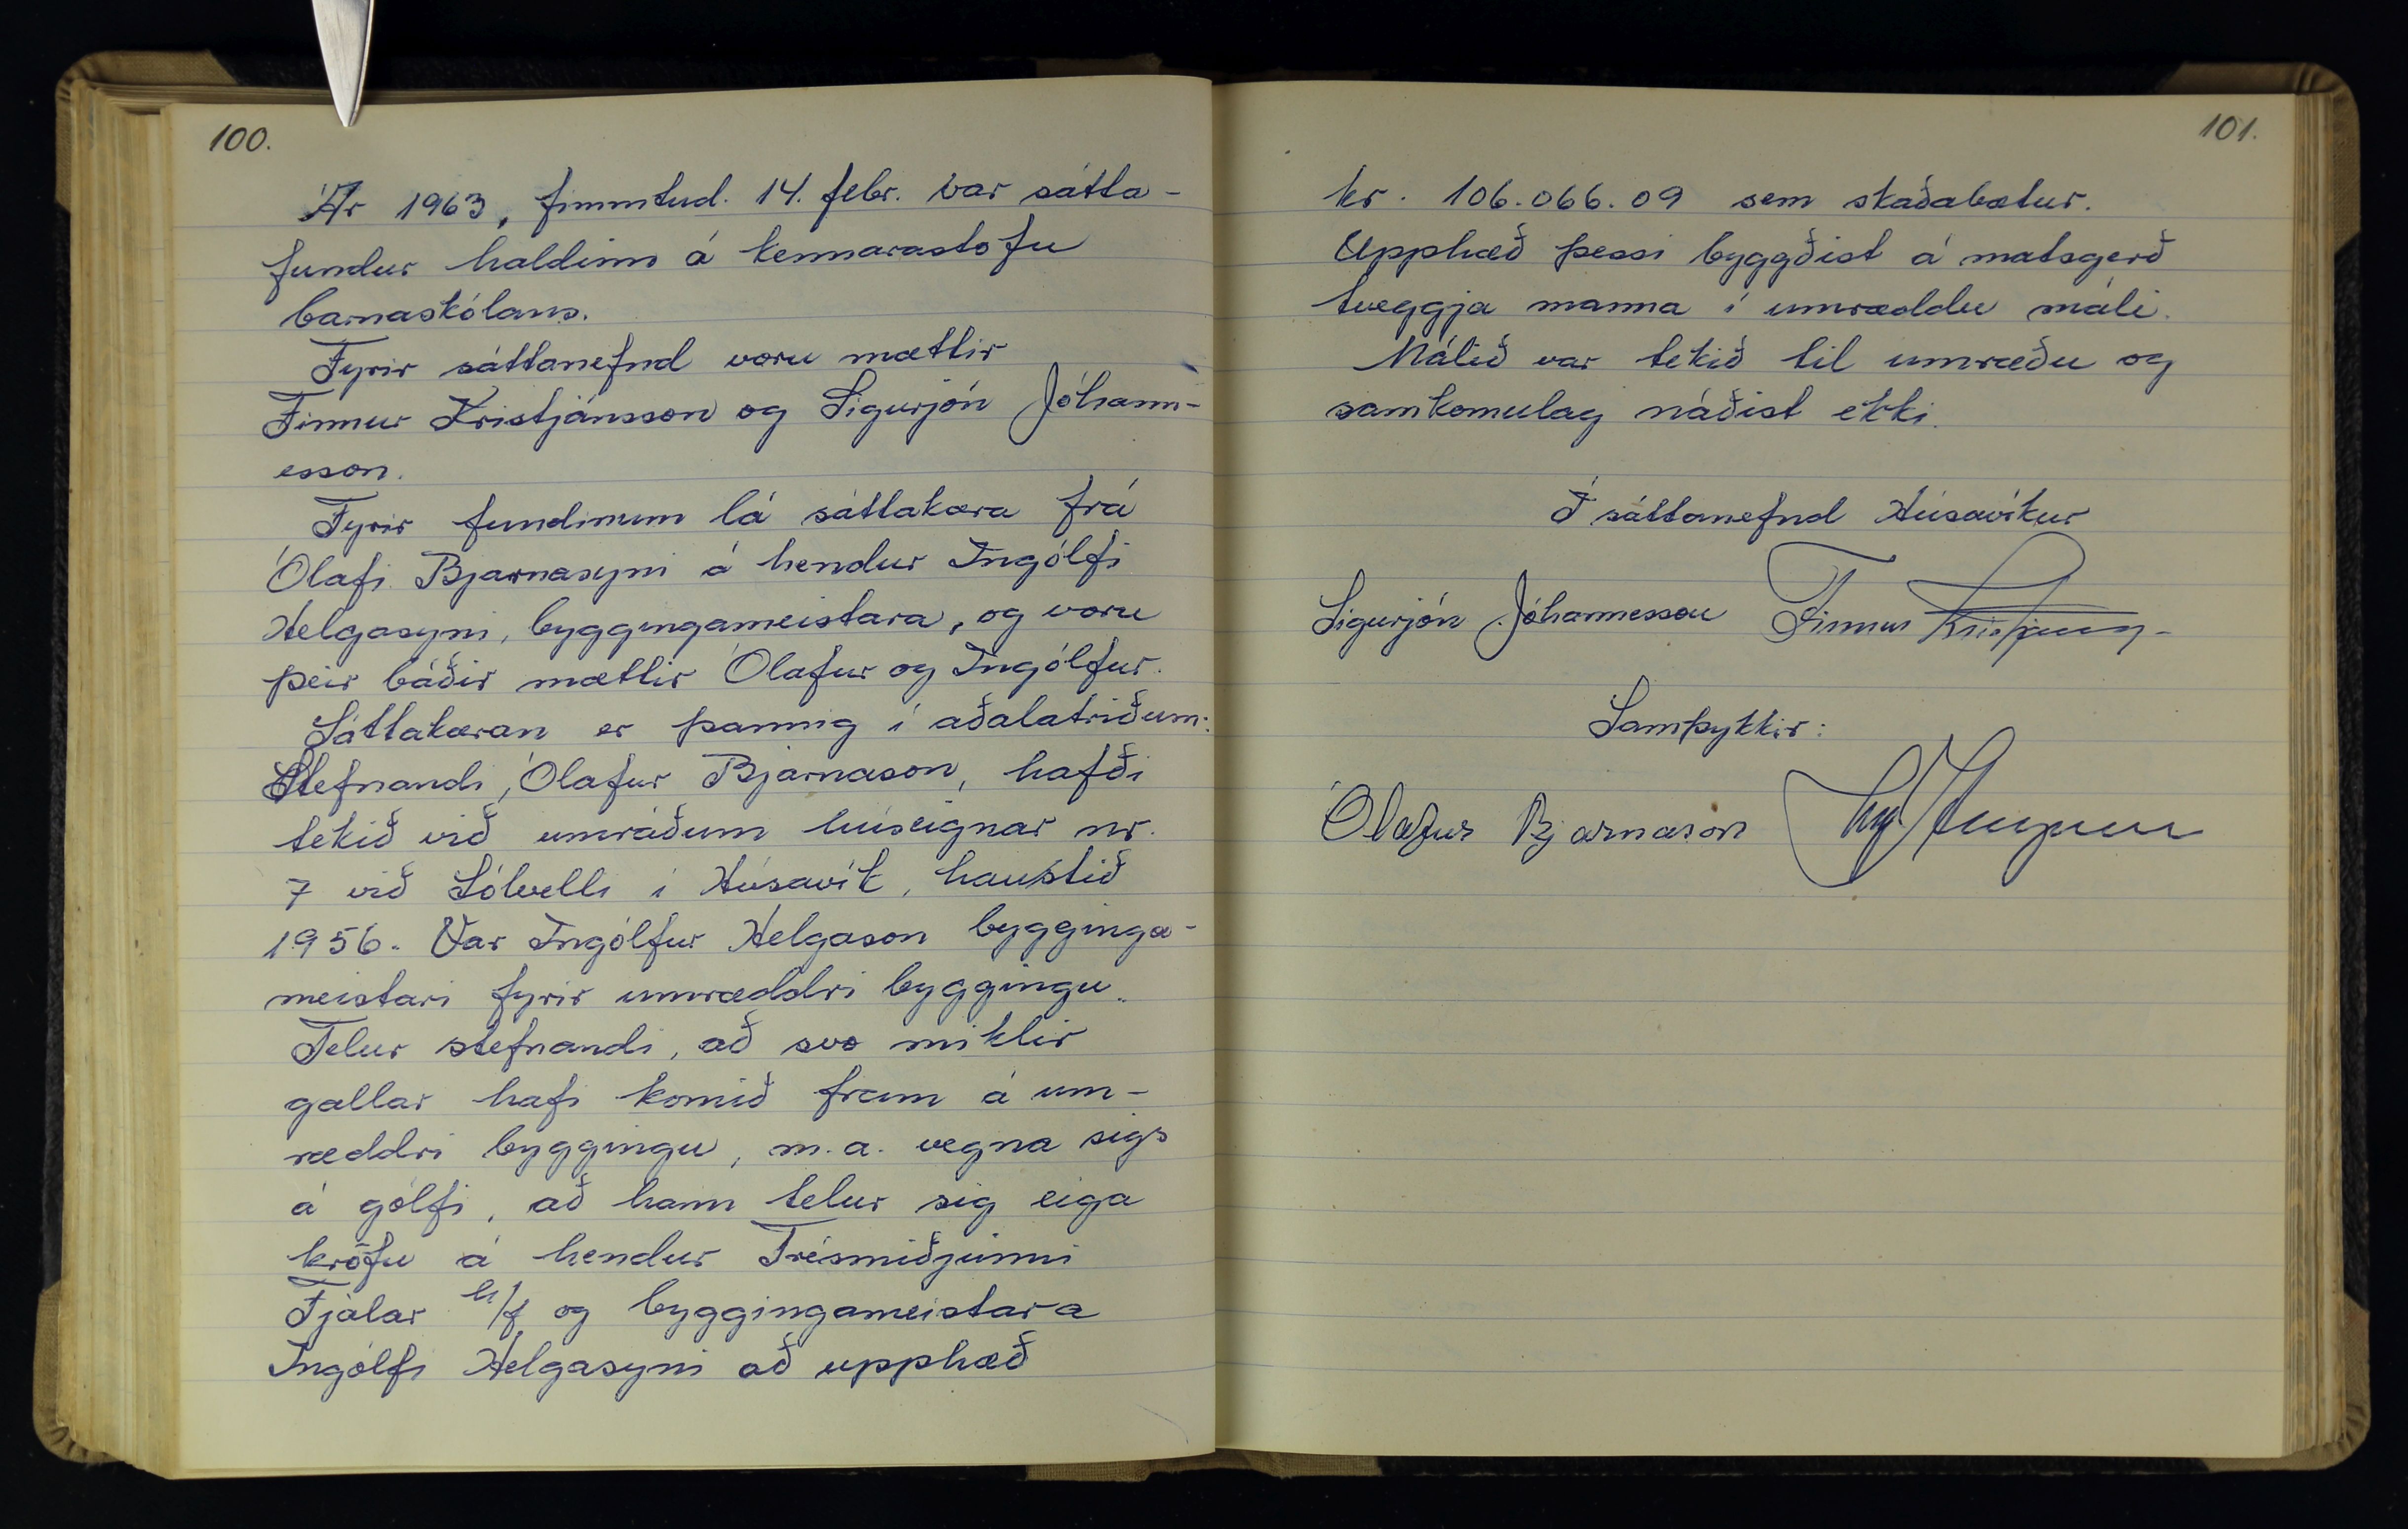 100.
Ár 1963, fimmtud. 14. febr. var sátta-
fundur haldinn á kennarastofu
barnaskólans.
Fyrir sáttanefnd voru mættir
Finnur Kristjánsson og Sigurjón Jóhann-
esson.
Fyrir fundinum lá sáttakæra frá
Ólafi Bjarnasyni á hendur Ingólfi
Helgasyni, byggingameistara, og voru
þeir báðir mættir Ólafur og Ingólfur.
Sáttakæran er þannig í aðalatriðum:
Stefnandi, Ólafur Bjarnason, hafði
tekið við umráðum húseignar nr.
7 við Sólvelli í Húsavík, haustið
1956. Var Ingólfur Helgason bygginga-
meistari fyrir umræddri byggingu.
Telur stefnandi, að svo miklir
gallar hafi komið fram á um-
ræddri byggingu, m.a. vegna sigs
á gólfi, að hann telur sig eiga
kröfu á hendur Trésmiðjunni
Fjalar h/f og byggingameistara
Ingólfi Helgasyni að upphæð
101.
kr. 106.066.09 sem skaðabætur.
Upphæð þessi byggðist á matsgerð
tveggja manna í umræddu máli.
Málið var tekið til umræðu og
samkomulag náðist ekki.
Í sáttanefnd Húsavíkur
Sigurjón Jóhannesson Finnur Kristjánsson
Samþykkir:
Ólafur Bjarnason